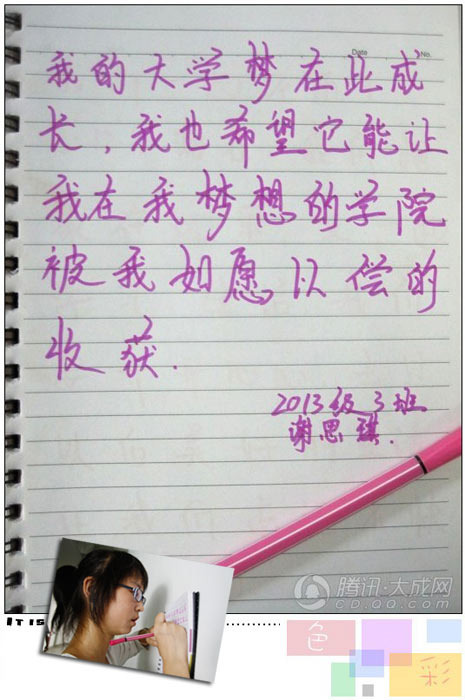 Date
No.
我的大学梦在此成
长,我也希望它能让
我在我梦想的学院
被我如愿以偿的
收获.
2013级3班
谢思琪.
腾讯·大成网
CD.QQ.COM
IT IS
色
彩